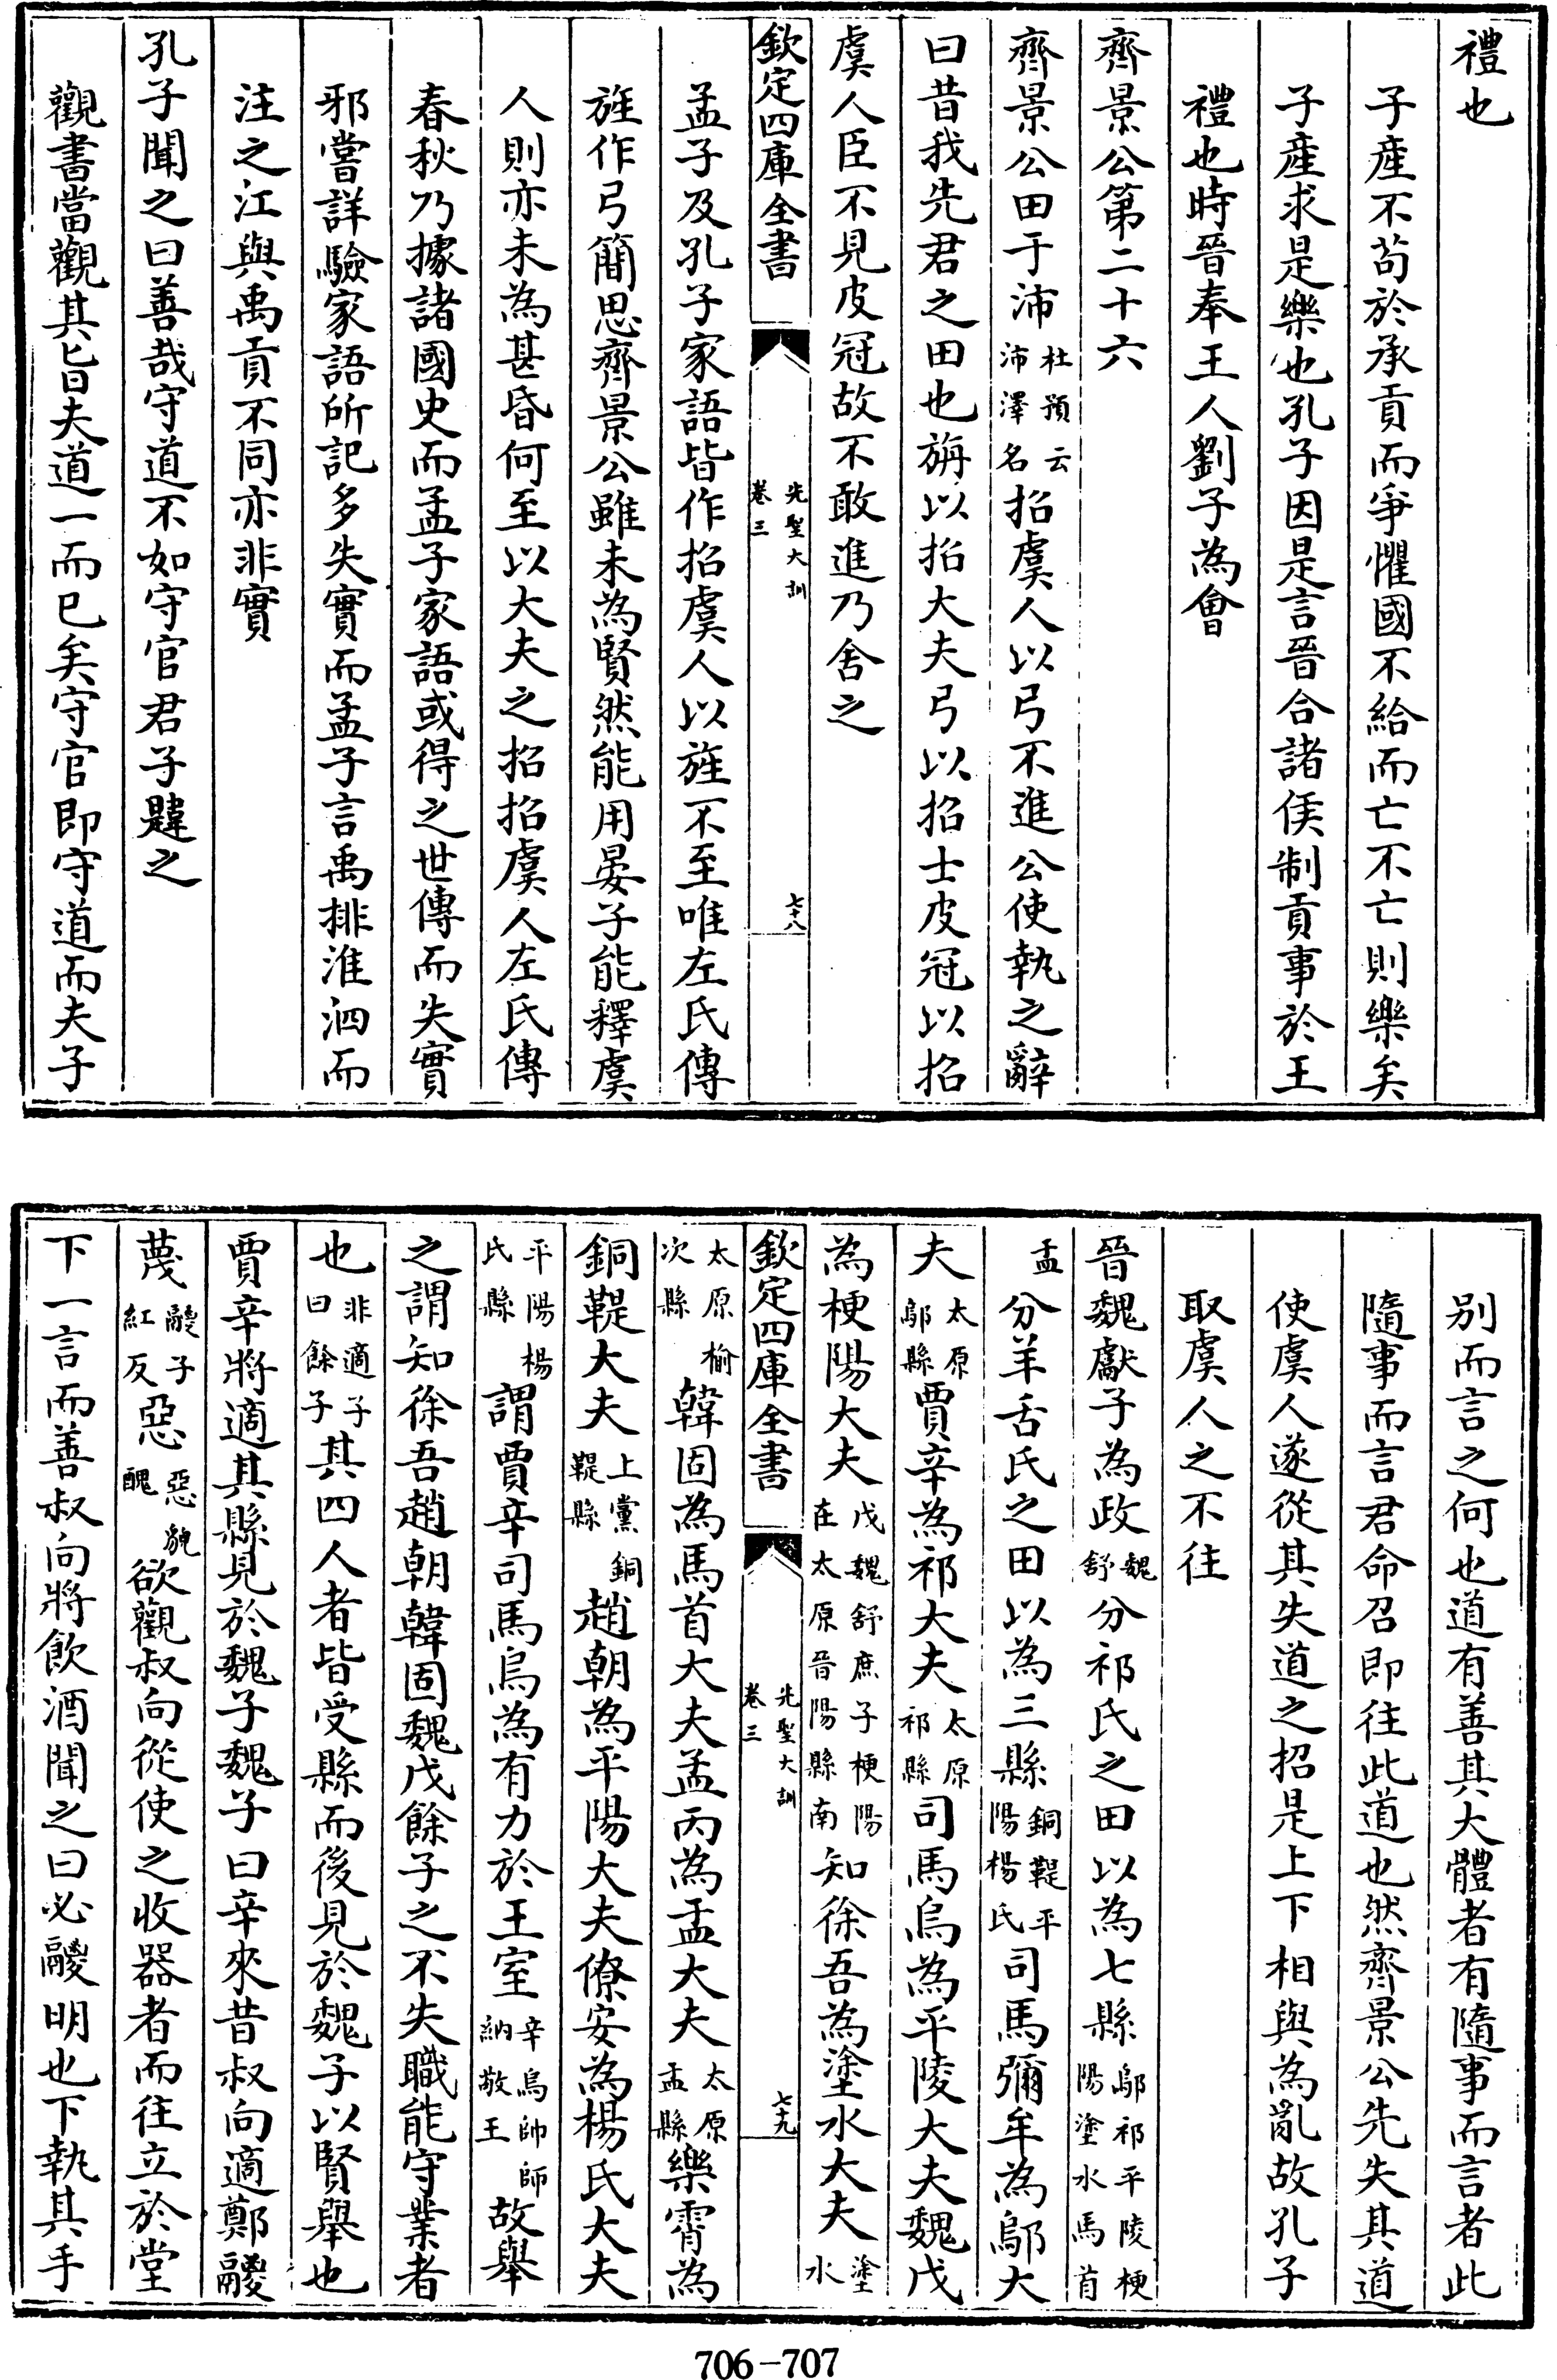 禮也
子產不茍於承貢而爭懼國不給而亡不亡則樂矣
子產求是樂也孔子因是言晉合諸侯制貢事於王
禮也時晉奉王人劉子為會
齊景公第二十六
齊景公田于沛杜預云沛澤名招虞人以弓不進公使執之辭
曰昔我先君之田也旃以招大夫弓以招士皮冠以招
虞人臣不見皮冠故不敢進乃舍之
欽定四庫全書 先聖大訓 卷三 七十八
孟子及孔子家語皆作招虞人以旌不至唯左氏傳
旌作弓簡思齊景公雖未為賢然能用晏子能釋虞
人則亦未為甚昏何至以大夫之招招虞人左氏傳
春秋乃據諸國史而孟子家語或得之世傳而失實
邪嘗詳驗家語所記多失實而孟子言禹排淮泗而
注之江與禹貢不同亦非實
孔子聞之曰善哉守道不如守官君子韙之
觀書當觀其旨夫道一而已矣守官即守道而夫子
别而言之何也道有善其大體者有隨事而言者此
隨事而言君命召即往此道也然齊景公先失其道
使虞人遂從其失道之招是上下相與為亂故孔子
取虞人之不往
晉魏獻子為政魏舒分祁氏之田以為七縣鄔祁平陵梗陽塗水馬首
盂分羊舌氏之田以為三縣銅鞮平陽楊氏司馬彌牟為鄔大
夫太原鄔縣賈辛為祁大夫太原祁縣司馬烏為平陵大夫魏戊
為梗陽大夫戊魏舒庶子梗陽在太原晉陽縣南知徐吾為塗水大夫塗水
欽定四庫全書 先聖大訓 卷三 七十九
太原榆次縣韓固為馬首大夫孟丙為盂大夫太原盂縣樂霄為
銅鞮大夫上黨銅鞮縣趙朝為平陽大夫僚安為楊氏大夫
平陽楊氏縣謂賈辛司馬烏為有力於王室辛烏帥師納敬王故舉
之謂知徐吾趙朝韓固魏戊餘子之不失職能守業者
也非適子曰餘子其四人者皆受縣而後見於魏子以賢舉也
賈辛將適其縣見於魏子魏子曰辛來昔叔向適鄭鬷
蔑鬷子紅反惡惡貌醜欲觀叔向從使之收器者而往立於堂
下一言而善叔向將飲酒聞之曰必鬷明也下執其手
706-707